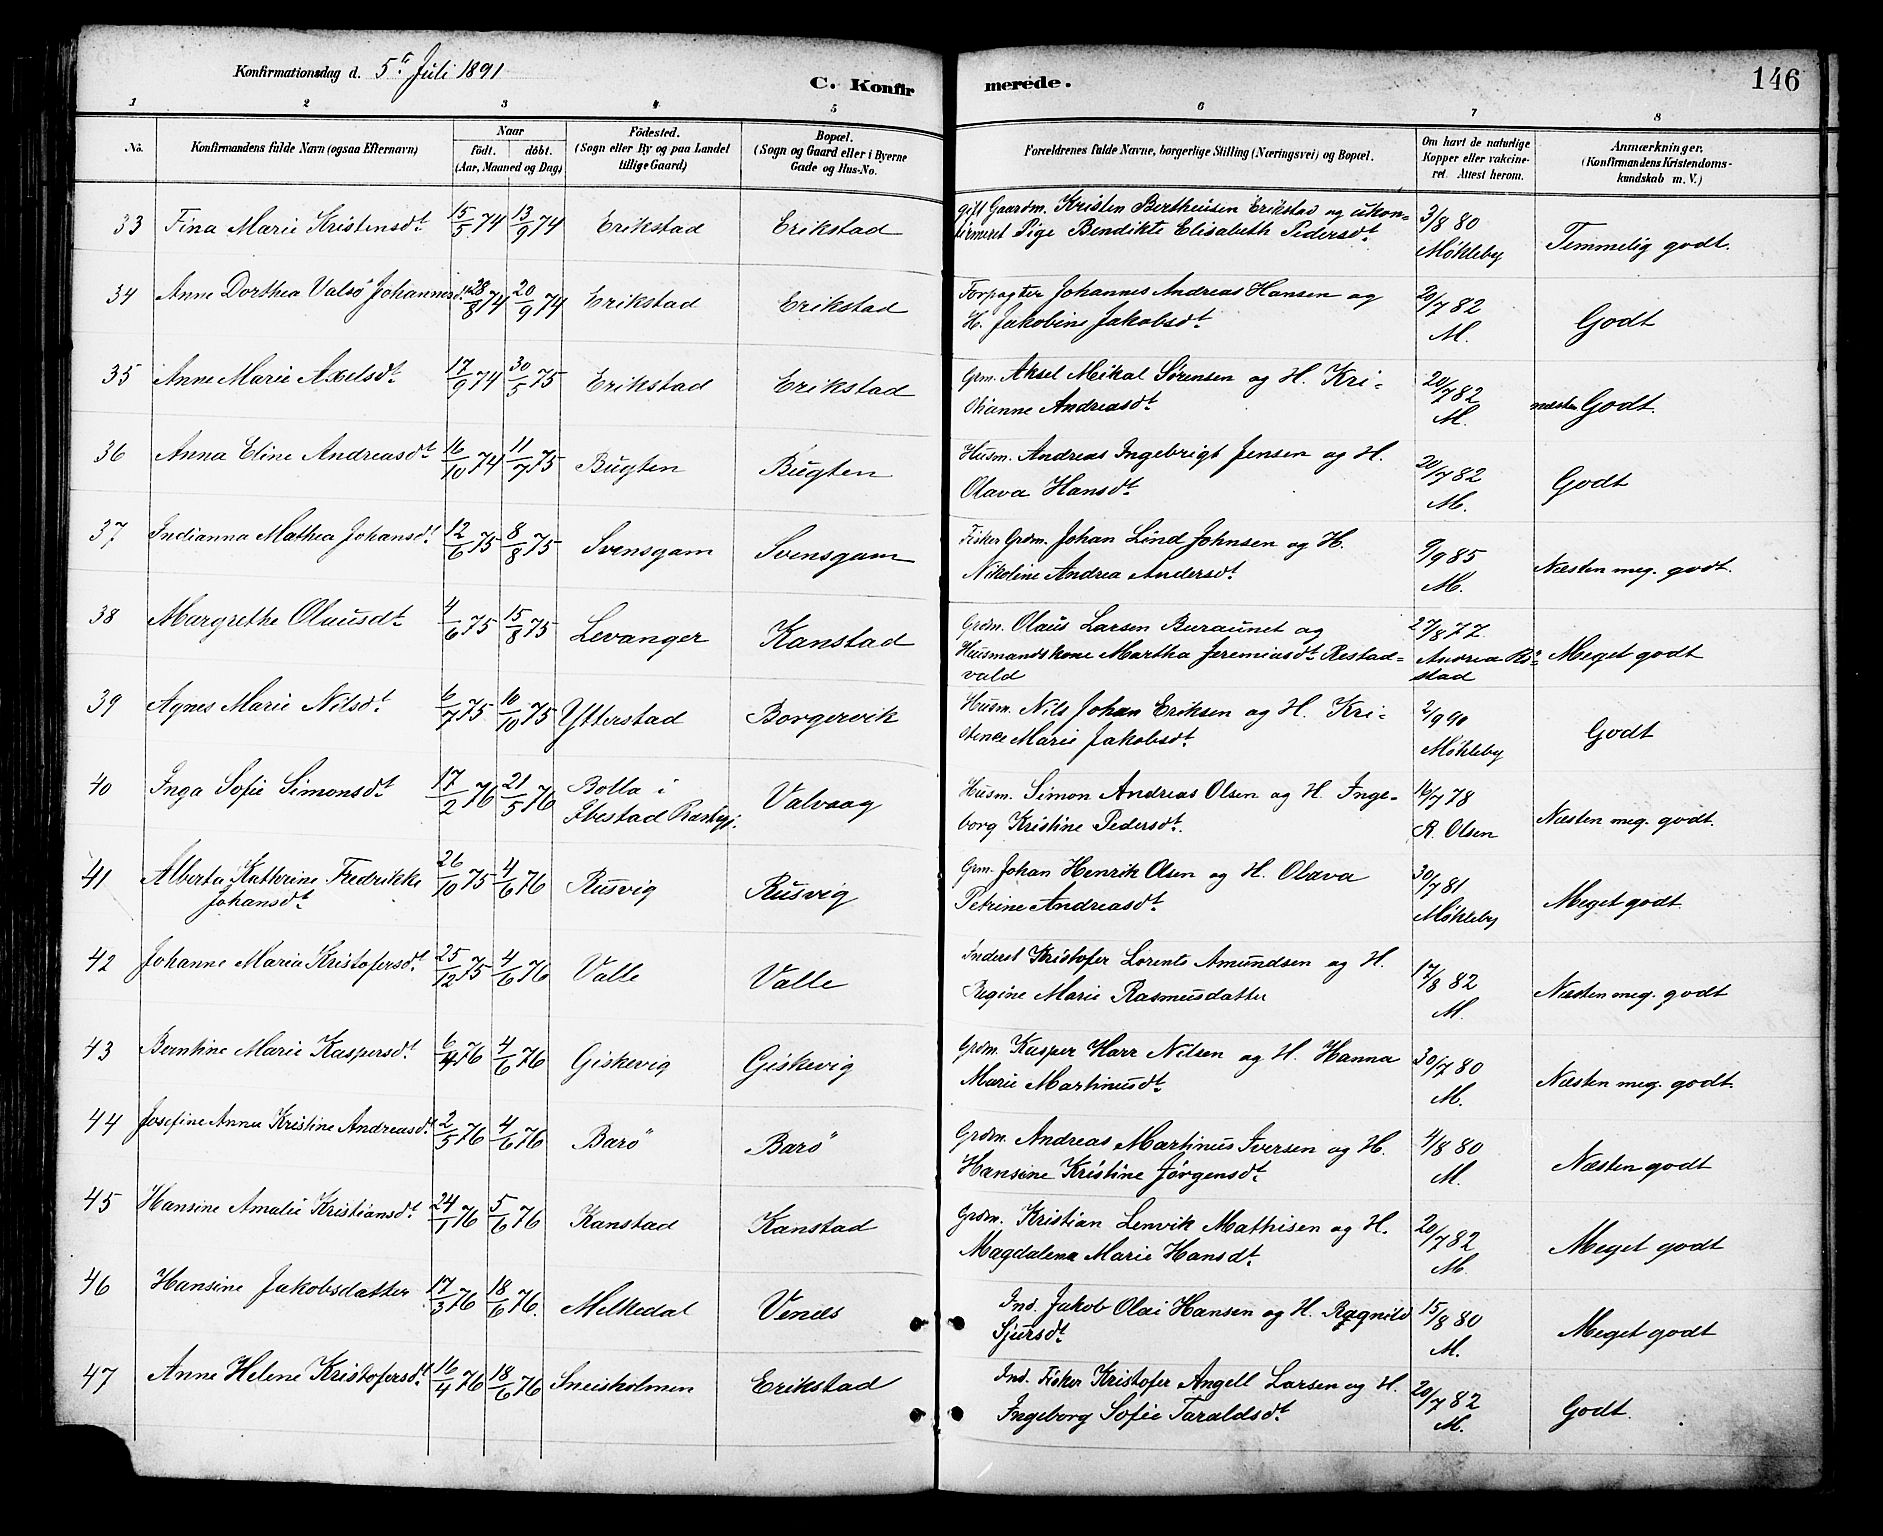 Konfirmationsdag d. 5t Juli 1891
C. Konfirmerede.
146
1 2 3 4 5 6 7 8
No. Konfirmandens fulde Navn (ogsaa Efternavn) Naar födt. döbt. (Aar, Maaned og Dag) Födested. (Sogn eller By og paa Landet tillige Gaard) Bopæl. (Sogn og Gaard eller i Byerne Gade og Hus-No. Forældrenes fulde Navne, borgerlige Stilling (Næringsvei) og Bopæl. Om havt de naturlige Kopper eller vakcineret. Attest herom. Anmærkninger. (Konfirmandens Kristendomskundskab m. V.)
33 Fina Marie Kristensdt 15/5 74 13/9 74 Erikstad Erikstad gift Gaardm. Kristen Bertheusen Erikstad og ukon-
firmeret Pige Bendikte Elisabeth Pedersdt 3/8 80 Møkleby Temmelig godt.
34 Anne Dorthea Valsö Johannesdt 28/8 74 20/9 74 Erikstad Erikstad Forpagter Johannes Andreas Hansen og
H. Jakobine Jakobsdt 20/7 82 M. Godt
35 Anne Marie Axelsdt 17/9 74 30/5 75 Erikstad Erikstad Grm. Aksel Mikal Sørensen og H. Kri-
stianne Andreasdt 20/7 82 M. næsten Godt
36 Anna Eline Andreasdt 16/10 74 11/7 75 Bugten Bugten Husm. Andreas Ingebrigt Jensen og H.
Olava Hansdt 20/7 82 M. Godt
37 Indianna Mathea Johansdt 12/6 75 8/8 75 Svensgam Svensgam Fisker Grdm. Johan Lind Johnsen og H.
Nikoline Andrea Andersdt 9/9 85 M. Næsten meg. godt.
38 Margrethe Olausdt 4/6 75 15/8 75 Levanger Kanstad Grdm. Olaus Larsen Buraunet og
Husmandskone Martha Jeremiasdt Restad-
vald 27/8 77 Andrea Röstad Meget godt
39 Agnes Marie Nilsdt 6/7 75 10/10 75 Ytterstad Borgervik Husm. Nils Johan Eriksen og H. Kri-
stence Marie Jakobsdt 2/9 90 Møkleby Godt
40 Inga Sofie Simonsdt 17/2 76 21/5 76 Bolla i Ibestad Præstegj. Valvaag Husm. Simon Andreas Olsen og H. Inge-
borg Kristine Pedersdt. 16/7 78 R. Olsen Næsten meg. godt.
41 Alberta Kathrine Fredrikke Johansdt 26/10 75 4/6 76 Rusvig Rusvig Grm. Johan Henrik Olsen og H. Olava
Petrine Andreasdt 30/7 81 Møkleby Meget godt
42 Johanne Maria Kristofersdt 25/12 75 4/6 76 Valle Valle Inderst Kristofer Lorents Amundsen og H.
Regine Marie Rasmusdatter 17/8 82 M. Næsten meg. godt
43 Berntine Marie Kaspersdt 6/4 76 4/6 76 Giskevig Giskevig Grdm. Kasper Harr Nilsen og H. Hanna
Marie Martinusdt 30/7 80 M. Næsten meg. godt.
44 Josefine Anna Kristine Andreasdt 2/5 76 4/6 76 Barö Barö Grdm. Andreas Martinus Iversen og H.
Hansine Kristine Jörgensdt 4/8 80 M. Næsten godt
45 Hansine Amalie Kristiansdt 24/1 76 5/6 76 Kanstad Kanstad Grdm. Kristian Lenvik Mathisen og H.
Magdalena Marie Hansdt 20/7 82 M. Meget godt
46 Hansine Jakobsdatter 17/3 76 18/6 76. Melkedal Venæs Ind. Jakob Olai Hansen og H. Ragnild
Sjursdt 15/8 80 M. Meget godt
47 Anne Helene Kristofersdt 16/4 76 18/6 76 Sneisholmen Erikstad Ind. Fisker Kristofer Angell Larsen og H.
Ingeborg Sofie Taraldsdt 20/7 82 M. Godt.